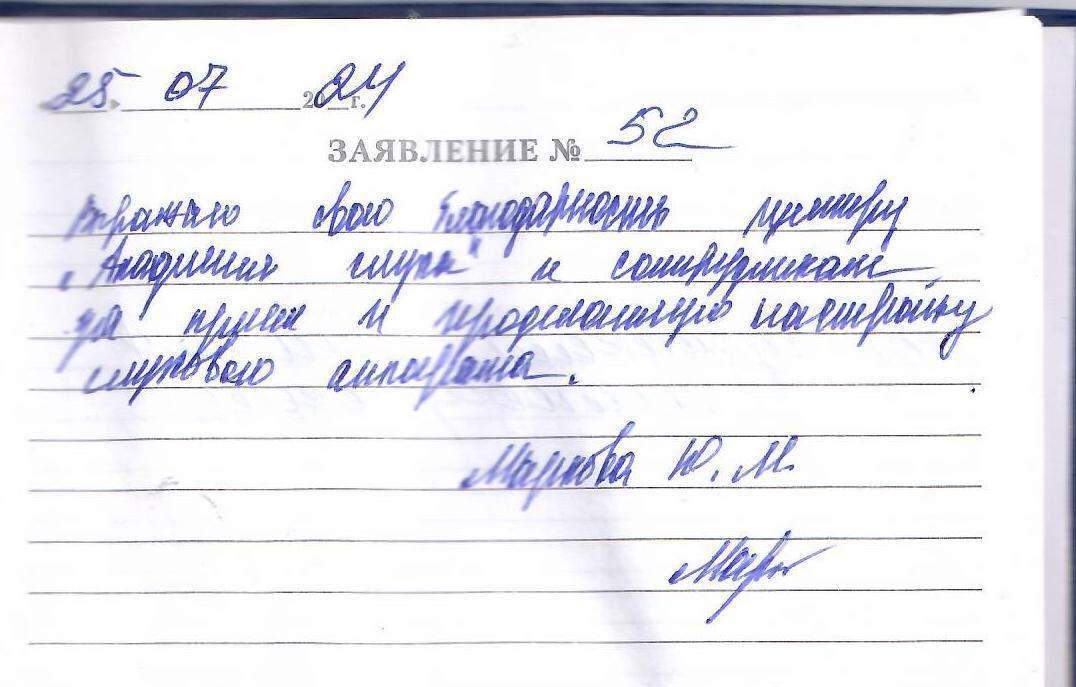 25. 07 2024 г.
ЗАЯВЛЕНИЕ № 52
Выражаю свою благодарность центру
"Академия слуха" и сотрудникам
за прием и настройку
слухового аппарата.
Маркова Ю. М.